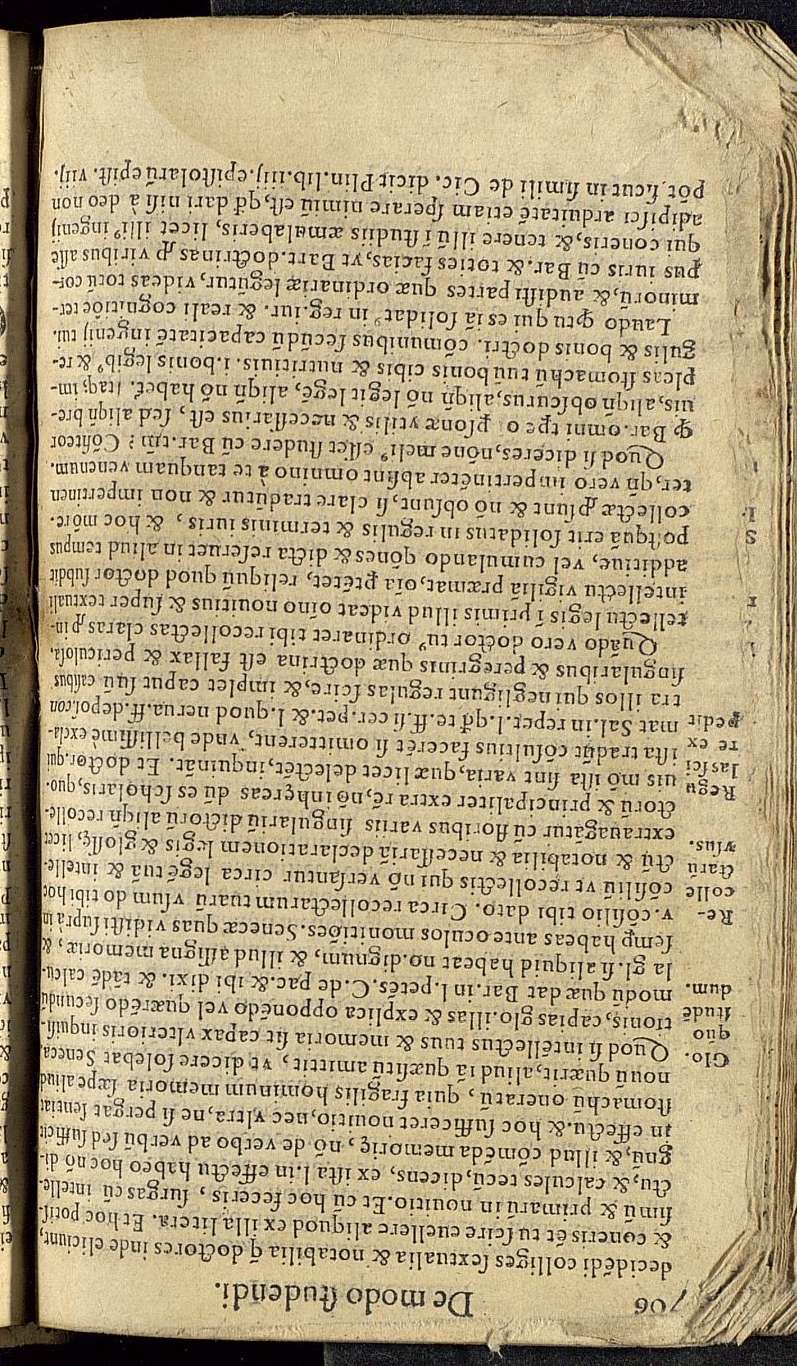 706 De modo ſtudendi.
decidēdi colliges ſextualia & notabilia q̄ doctores inde eliciunt,
& coneris ēt tu ſcire euellere aliquod ex illa litera. Et hoc potiſ-
ſimū & primarū in nouitio. Et cū hoc feceris, ſurgas cū intelle-
ctu, & calcules tecū, dicens, ex iſta l. in effectu habeo hoc nō di-
gnū, & illud cōmēda memorię, nō de verbo ad verbū ſed ſufficit
in effectu. & hoc ſufficeret nouitio, nec vltra, ne ſi pergat ſentiat
ſtomachū oneratū, quia fragilis hominum memoria ſæpe aliud
nouū quærit, aliud iā quæſitū amittit, vt dicere ſolebat Seneca.
Glo. Quod ſi intellectus tuus & memoria ſit capax vlterioris inquiſi-
quo tionis, capias glo. illas & explica opponēdo vel quærēdo ſecundū
ſtudē modū quæ dat Bar. in l. petēs. C. de pac. & ibi dixi. & tādē calcu.
dum. la gl. ſi aliquid habeat no. dignum, & illud aſſigna memoriæ, &
ſemꝑ habeas ante oculos monitiōes Senecæ quas vidiſti ſupra in
Re- v. cōſilio tibi dato. Circa recollectarum tuarū vſum do tibi hoc
colle cōſiliū vt recollectis qui nō verſantur circa legē tuā & intelle-
ctarū ctū & notabilia & neceſſariā declarationem legis & gloſſę, licet
vſus. extrauagātur cū floribus variis ſingulariū dictorū aliqñ recolle-
ctorū & principaliter extra rē, nō inhęreas dū es ſcholaris, quo.
Regu uis mō illa ſint varia, quæ licet delectēt, inquināt. Et doctor. qui
las ſci iſta tradūt cōſultius facerēt ſi omitterent, vnde belliſſimè excla-
re ex mat Sal. in repet. l. qđ te. ff. ſi cer. pet. & l. quod nerua. ff. depoſ. con
pedit tra illos qui negligunt regulas ſcire, & implet caput ſuū caſibus
ſingularibus & peregrinis quæ doctrina eſt fallax & periculoſa.
Quādo vero doctor tu⁹ ordinaret tibi recollectas claras ꝓ in-
tellectu legis ī primis illud videat oīno nouitius & ſuper textuali
intellectu vigiliā præmat, oīa ꝑtētet, reliquū quod doctor ſubdit
additiue, vel cumulando qōnes & dicta reſeruet in aliud tempus
poſtquā erit ſolidatus in regulis & terminis iuris, & hoc mōre.
collectæ ꝓſunt & nō obſunt, ſi clare tradūtur & non impertinen
ter, qñ vero impertinēter abſint omnino à te tanquam venenum.
Quod ſi diceres, nōne meli⁹ eſſet ſtudere cū Bar. tm̄? Cōfiteor
ꝙ Bar. omni tpe o ꝑſonæ vtilis & neceſſarius eſt, ſed aliqñ bre-
uis, aliqñ obſcurus, aliqñ nō legit legē, aliqñ nō habet. itaq; im-
pleas ſtomachū tuū bonis cibis & nutritiuis. i. bonis legib⁹ & re-
gulis & bonis doctri. cōmunibus ſecūdū capacitatē ingenij tui.
Laudo ꝙ tu qui es iā ſolidat⁹ in reg. iur. & reali cognitiōe ter-
minorū, & audiſti partes quæ ordinariæ legūtur, videas totū cor-
pus iuris cū Bar. & toties facias, vt Bart. doctrinas ꝓ viribus aſſe
qui coneris, & tenere illū ī ſtudiis æmulaberis, licet illi⁹ ingenij
adipiſci arduitatē etiam ſperare nimiū eſt, qđ dari niſi à deo non
pōt. ſicut in ſimili de Cic. dicit Plin. lib. iiij. epiſtolarū epiſt. viij.